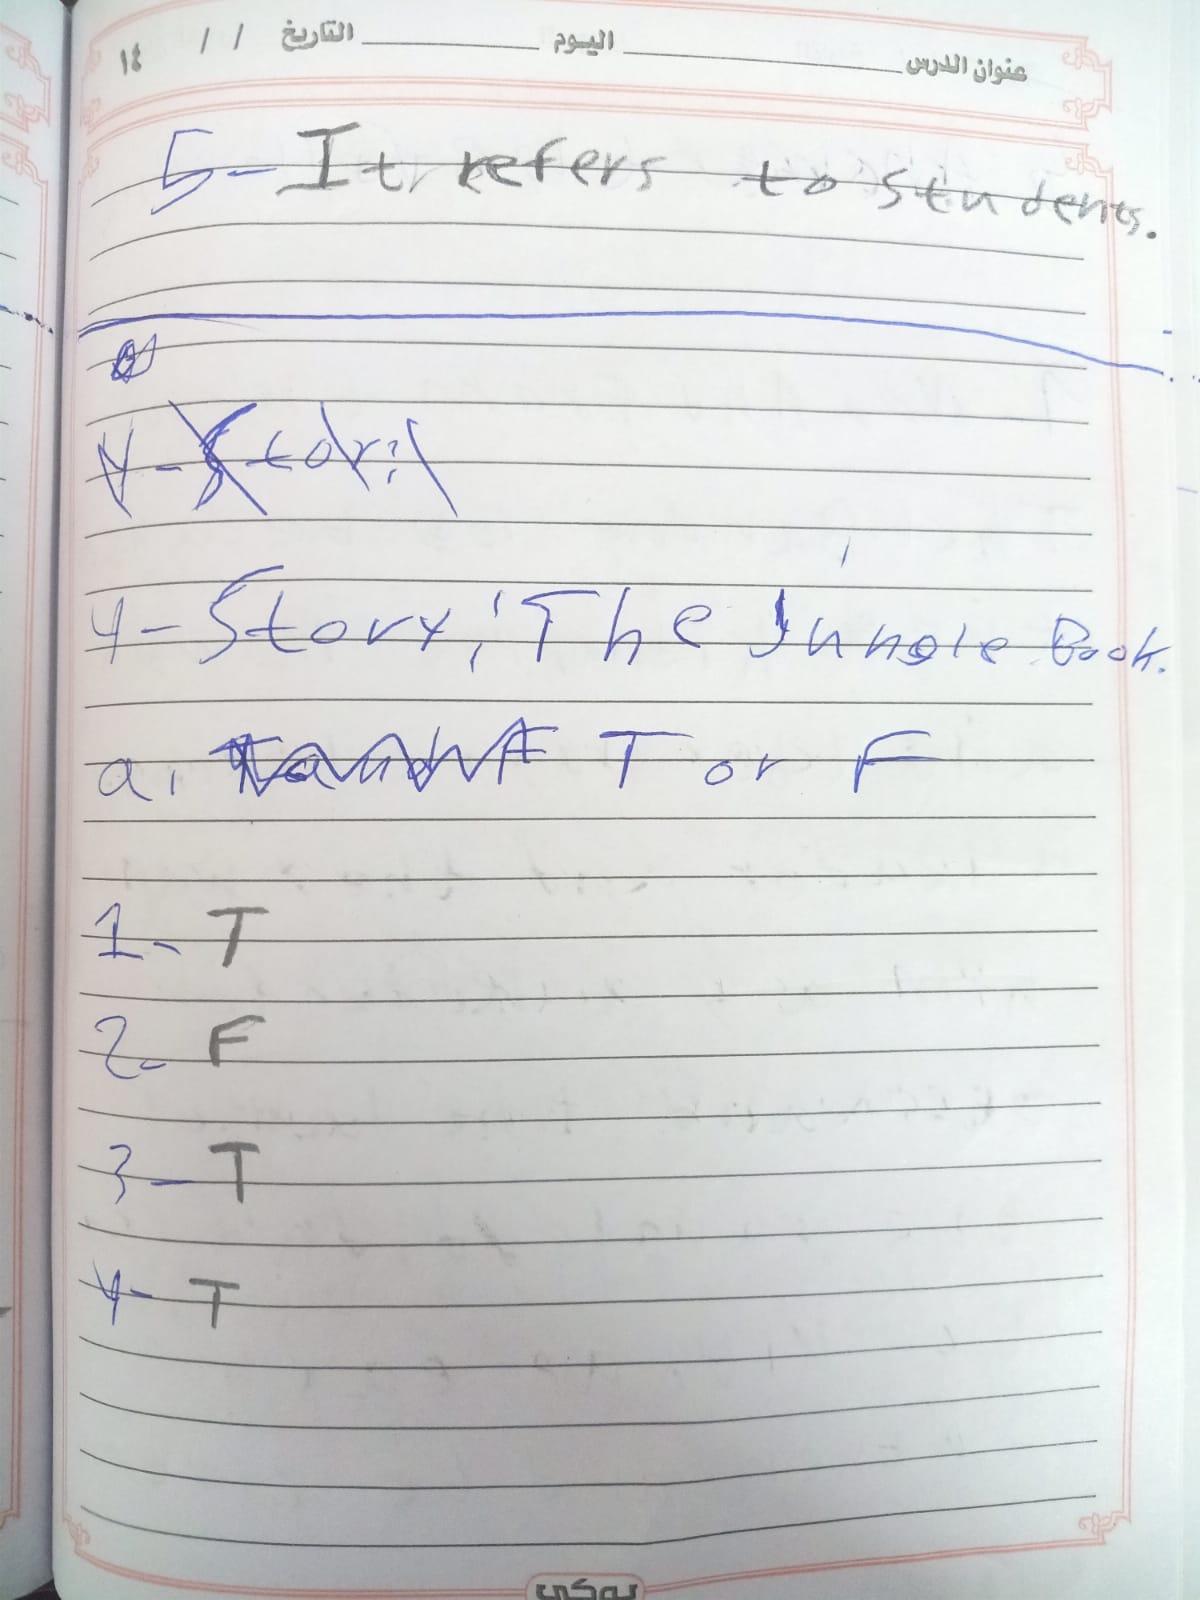 عنوان الدرس ________ اليوم ________ التاريخ / / ١٤
5- It refers to students.
4- Story
4- Story: The Jungle Book.
a. T or F
1- T
2- F
3- T
4- T
يوكي